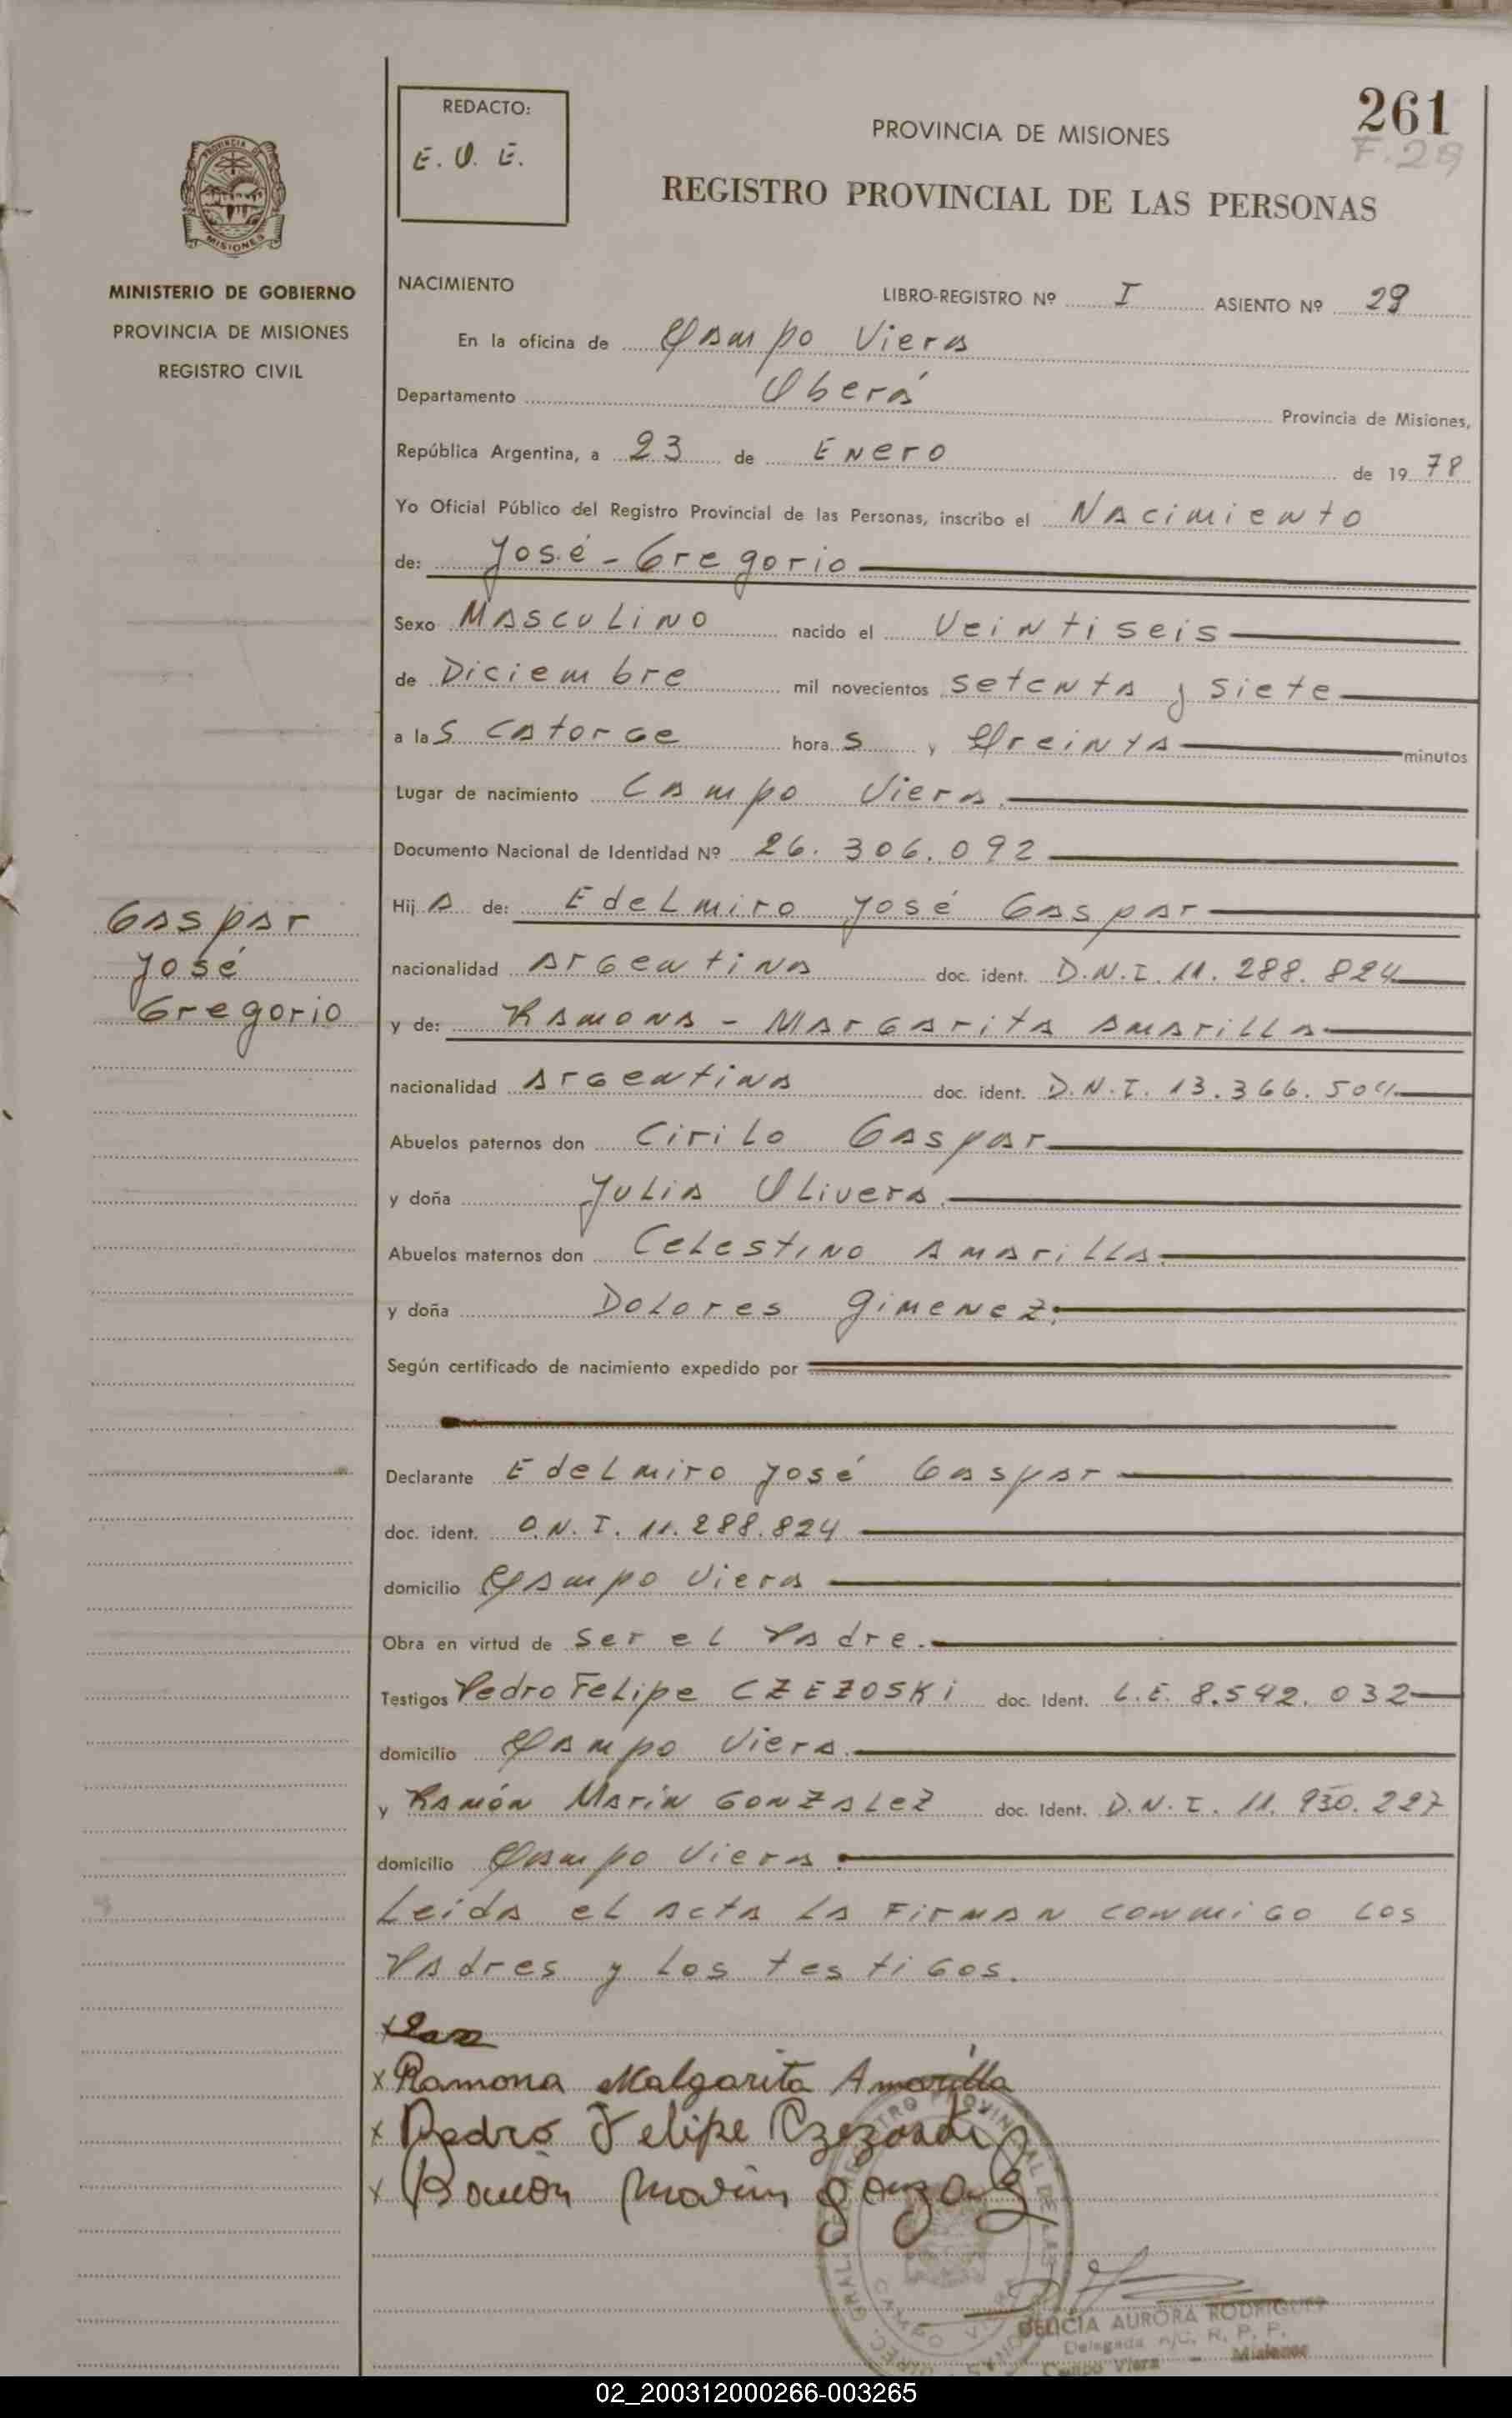 261
F. 29
REDACTO:
E. V. E.
PROVINCIA DE MISIONES
REGISTRO PROVINCIAL DE LAS PERSONAS
PROVINCIA DE
MISIONES
MINISTERIO DE GOBIERNO
PROVINCIA DE MISIONES
REGISTRO CIVIL
NACIMIENTO
LIBRO-REGISTRO Nº I ASIENTO Nº 29
En la oficina de Campo Viera
Departamento Oberá Provincia de Misiones,
República Argentina, a 23 de Enero de 1978
Yo Oficial Público del Registro Provincial de las Personas, inscribo el Nacimiento
de: José - Gregorio
Sexo Masculino nacido el Veintiseis
de Diciembre mil novecientos setenta y siete
a las catorce horas y treinta minutos
Lugar de nacimiento Campo Viera.
Documento Nacional de Identidad Nº 26.306.092
Gaspar
José
Gregorio
Hija de: Edelmiro José Gaspar
nacionalidad Argentina doc. ident. D.N.I. 11.288.824
y de: Ramona - Margarita Amarilla
nacionalidad Argentina doc. ident. D.N.I. 13.366.504
Abuelos paternos don Cirilo Gaspar
y doña Julia Olivera.
Abuelos maternos don Celestino Amarilla.
y doña Dolores Gimenez.
Según certificado de nacimiento expedido por
Declarante Edelmiro José Gaspar
doc. ident. D.N.I. 11.288.824
domicilio Campo Viera
Obra en virtud de ser el Padre.
Testigos Pedro Felipe CZEZOSKI doc. Ident. L.E. 8.542.032
domicilio Campo Viera.
y Ramón Marin GONZALEZ doc. Ident. D.N.I. 11.930.227
domicilio Campo Viera.
Leida el acta la firman conmigo los
Padres y los testigos.
x
x Ramona Malgarita Amarilla
x Pedro Felipe Czezoski
x Ramón Marin Gonzalez
DELICIA AURORA RODRIGUEZ
Delegada a/c. R. P. P.
Campo Viera - Misiones
02_200312000266-003265